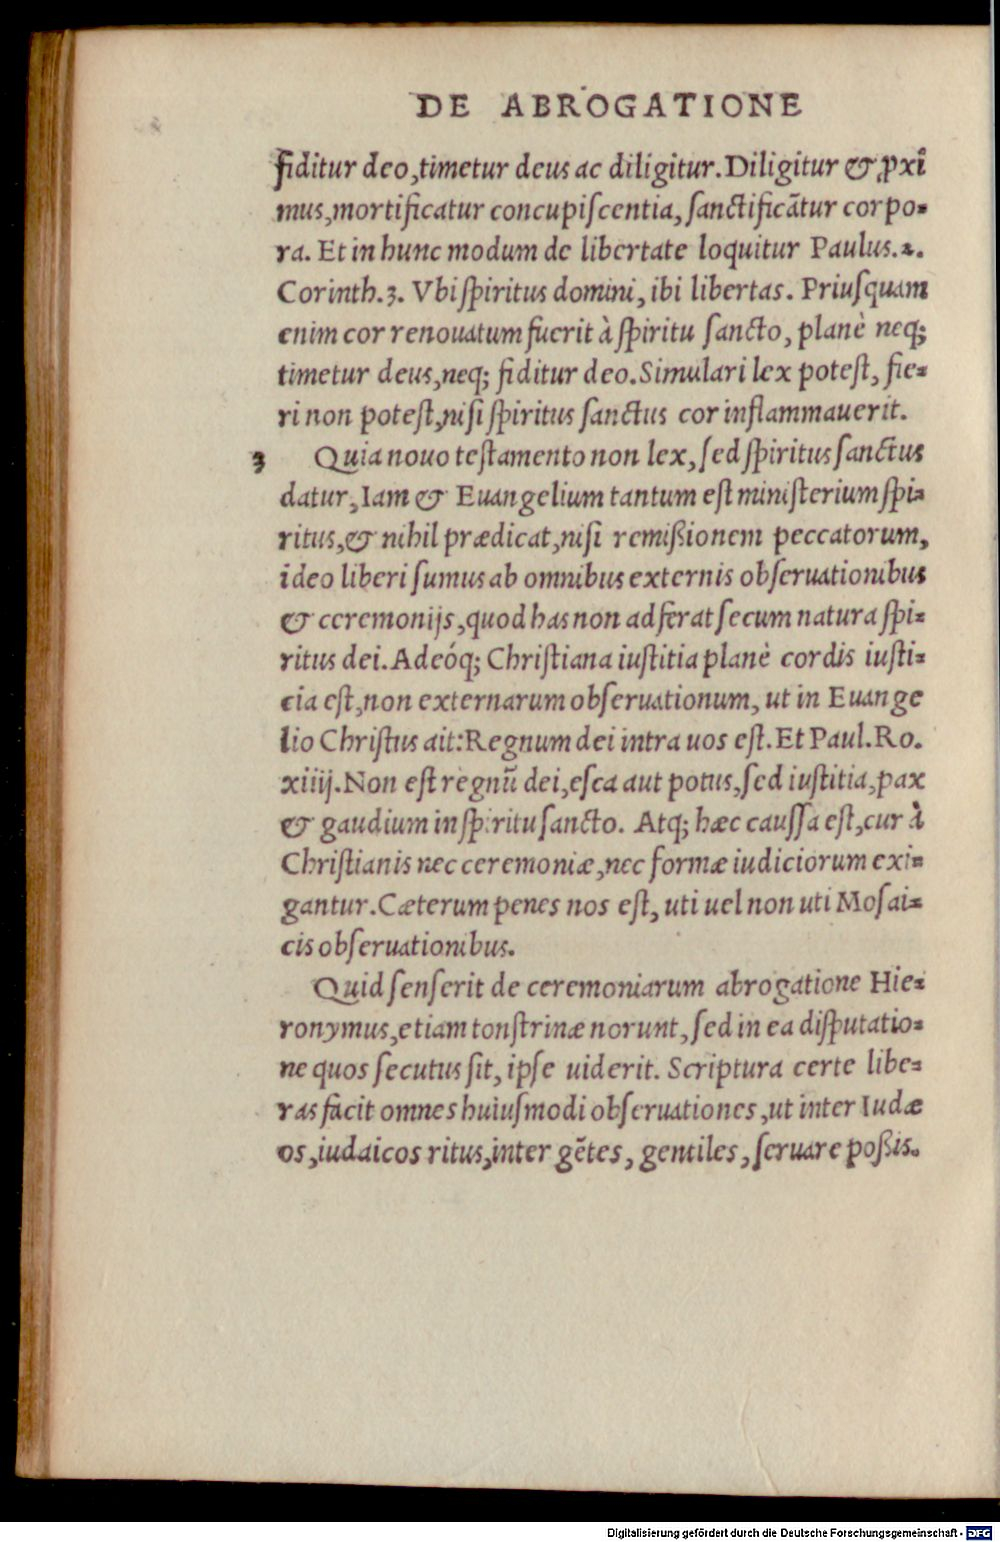 DE ABROGATIONE
fiditur deo, timetur deus ac diligitur. Diligitur & ꝓxi
mus, mortificatur concupiscentia, sanctificātur corpo-
ra. Et in hunc modum de libertate loquitur Paulus. 2.
Corinth. 3. Vbi spiritus domini, ibi libertas. Priusquam
enim cor renouatum fuerit à spiritu sancto, planè neq;
timetur deus, neq; fiditur deo. Simulari lex potest, fie-
ri non potest, nisi spiritus sanctus cor inflammauerit.
3 Quia nouo testamento non lex, sed spiritus sanctus
datur, Iam & Euangelium tantum est ministerium spi-
ritus, & nihil prædicat, nisi remißionem peccatorum,
ideo liberi sumus ab omnibus externis obseruationibus
& ceremonijs, quod has non adferat secum natura spi-
ritus dei. Adeóq; Christiana iustitia planè cordis iusti-
cia est, non externarum obseruationum, ut in Euange
lio Christus ait: Regnum dei intra uos est. Et Paul. Ro.
xiiij. Non est regnū dei, esca aut potus, sed iustitia, pax
& gaudium in spiritu sancto. Atq; hæc caussa est, cur à
Christianis nec ceremoniæ, nec formæ iudiciorum exi-
gantur. Cæterum penes nos est, uti uel non uti Mosai-
cis obseruationibus.
Quid senserit de ceremoniarum abrogatione Hie-
ronymus, etiam tonstrinæ norunt, sed in ea disputatio-
ne quos secutus sit, ipse uiderit. Scriptura certe libe-
ras facit omnes huiusmodi obseruationes, ut inter Iudæ
os, iudaicos ritus, inter gētes, gentiles, seruare poßis.
Digitalisierung gefördert durch die Deutsche Forschungsgemeinschaft - DFG